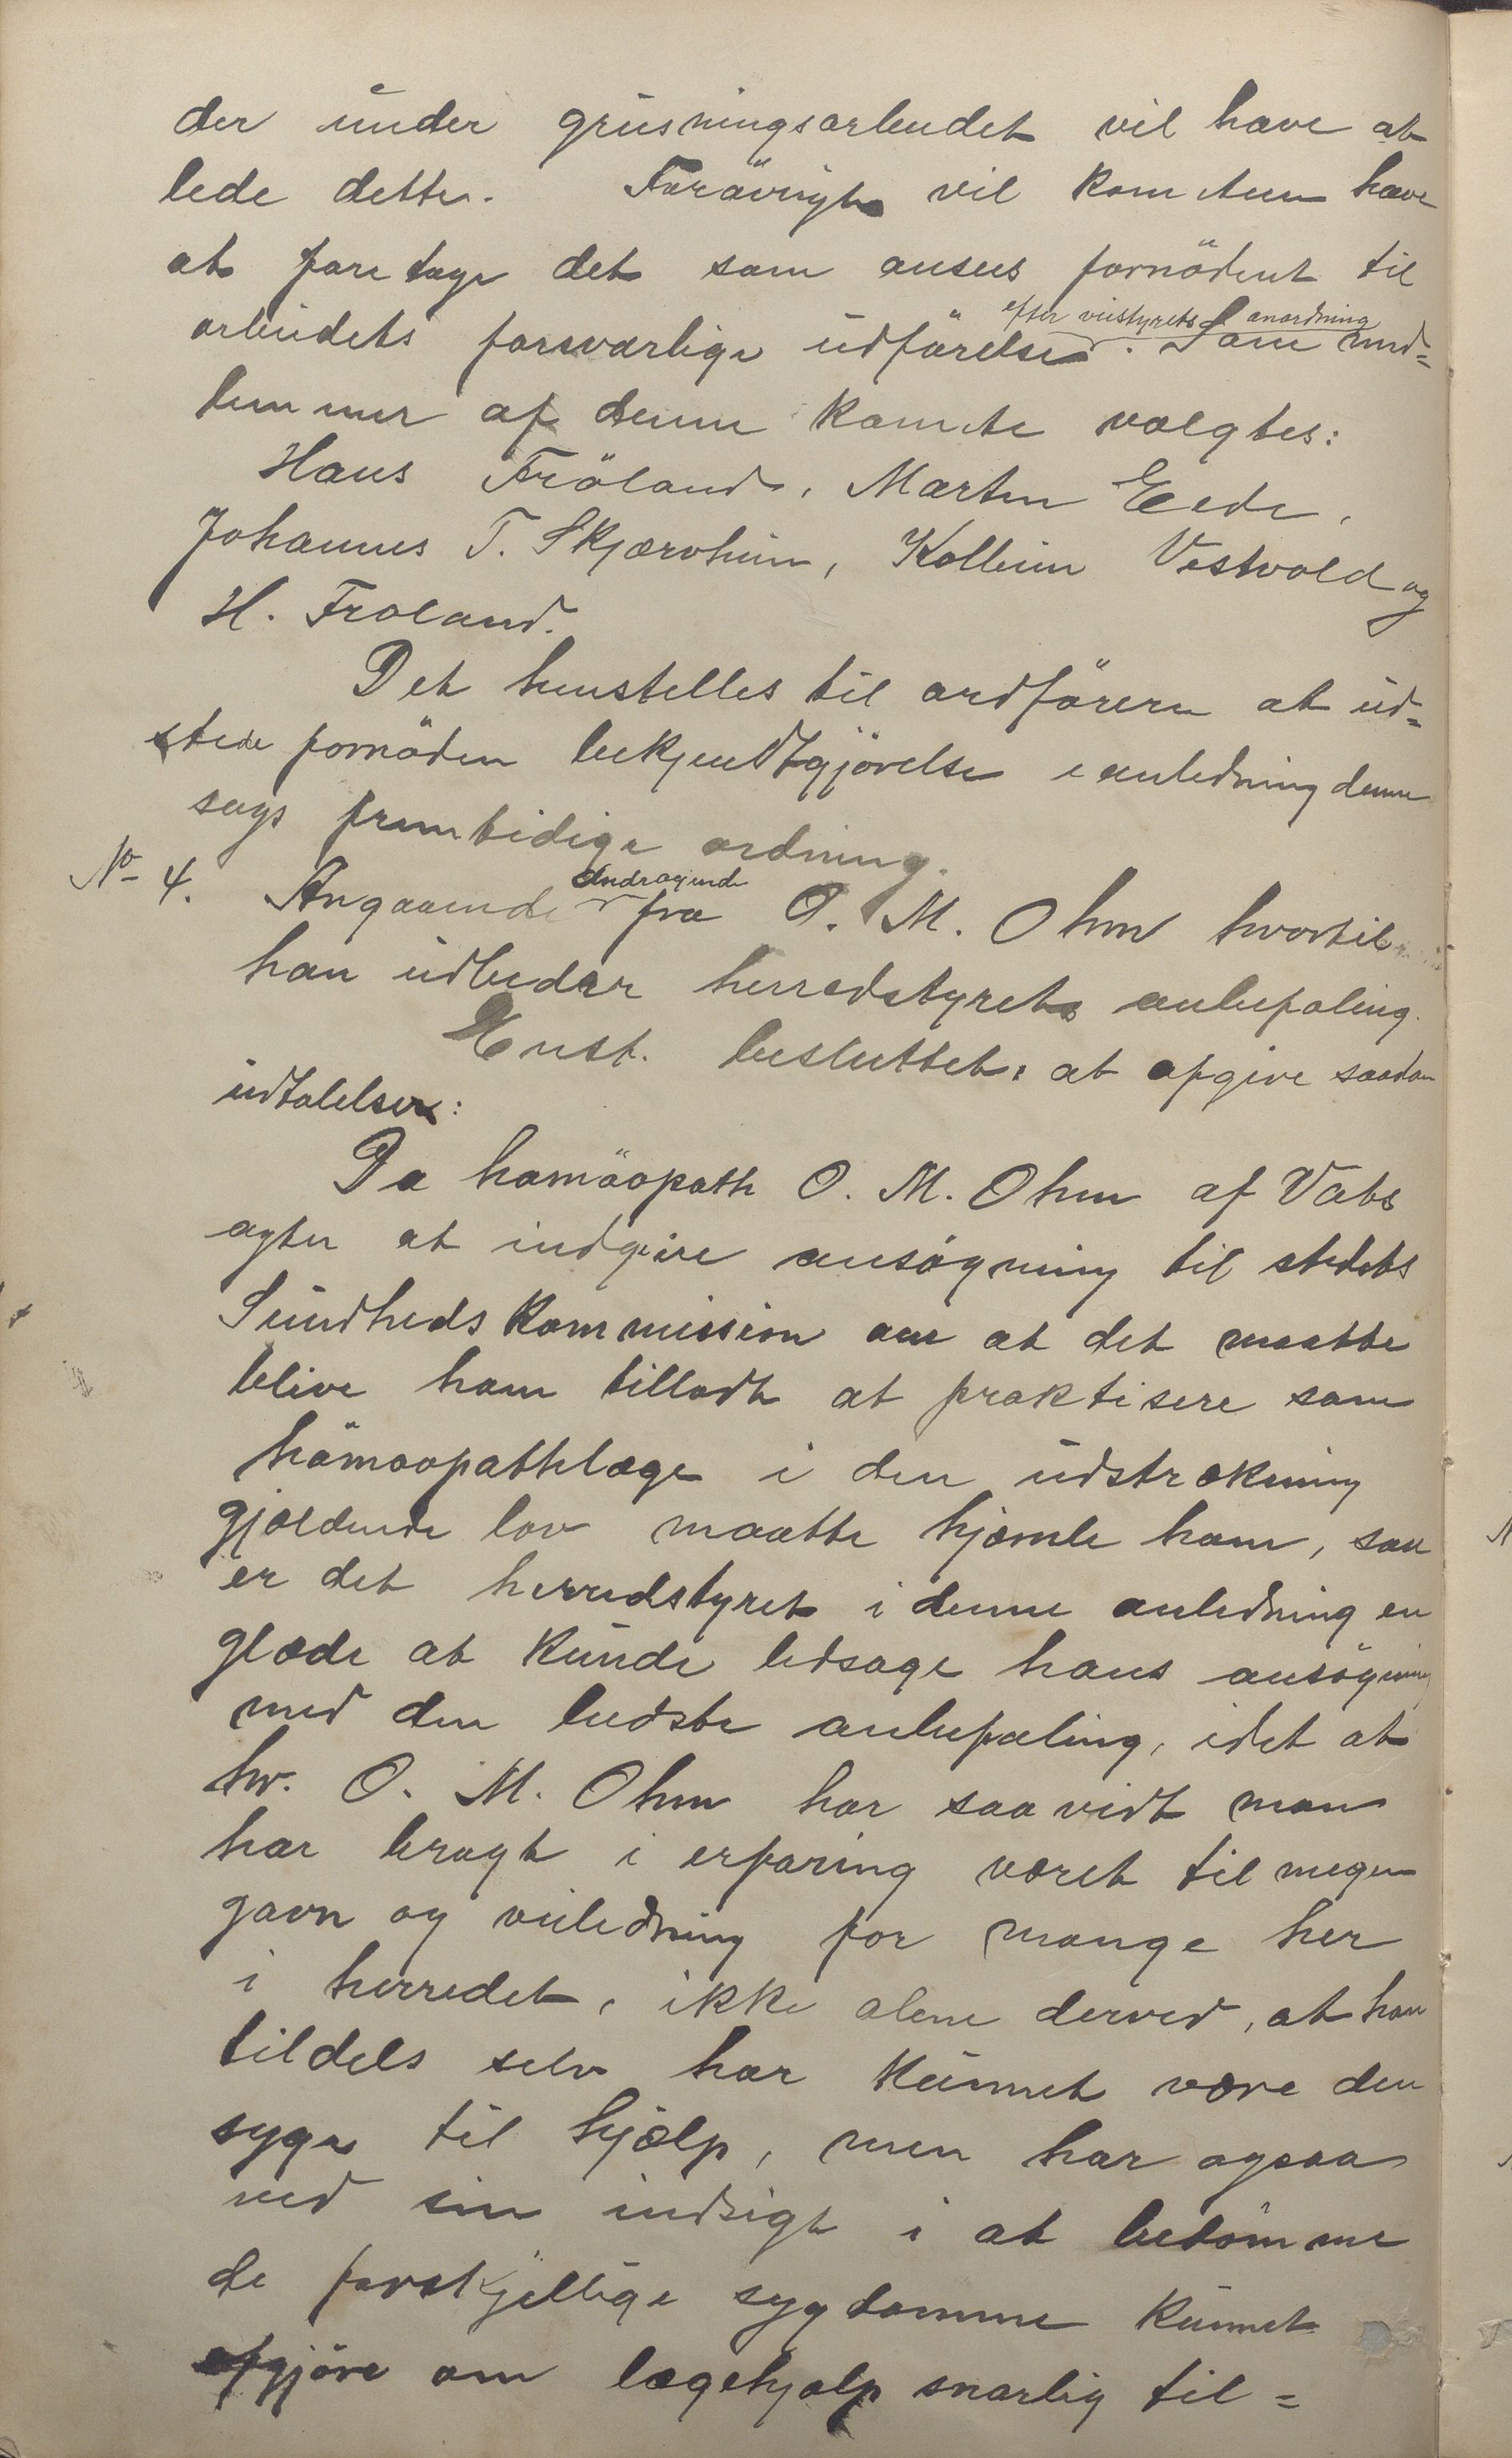 der under grusningsarbeidet vil have at
lede dette. Forövrigt vil komiteen have
at foretage det som ansees fornödent til
efter veistyrets anordning
arbeidets forsvarlige udförelse. Som med=
lemmer af denne komite valgtes:
Hans Fröland, Martin Eede,
Johannes T. Skjærvheim, Kolbein Vestvold og
H. Froland.
Det henstelles til ordföreren at ud=
stede fornöden bekjendtgjörelse i anledning denne
sags fremtidige ordning.
No 4. Angaaende andragende fra O. M. Ohm hvortil
han udbeder herredstyrets anbefaling.
Enst. besluttet: at afgive saadan
udtalelse:
Da homöopath O. M. Ohm af Vats
agter at indgive ansögning til stedets
Sundhedskommission om at det maatte
blive ham tilladt at praktisere som
hömoopathlæge i den udstrækning
gjældende lov maatte hjemle ham, saa
er det herredstyret i denne anledning en
glæde at kunde ledsage hans ansögning
med den bedste anbefaling, idet at
hr. O. M. Ohm har saavidt man
har bragt i erfaring været til megen
gavn og veiledning for mange her
i herredet, ikke alene derved, at han
tildels selv har kunnet være den
syge til hjælp, men har ogsaa
ved sin indsigt i at bedömme
de forskjellige sygdomme kunnet
afgjöre om lægehjælp snarlig til=